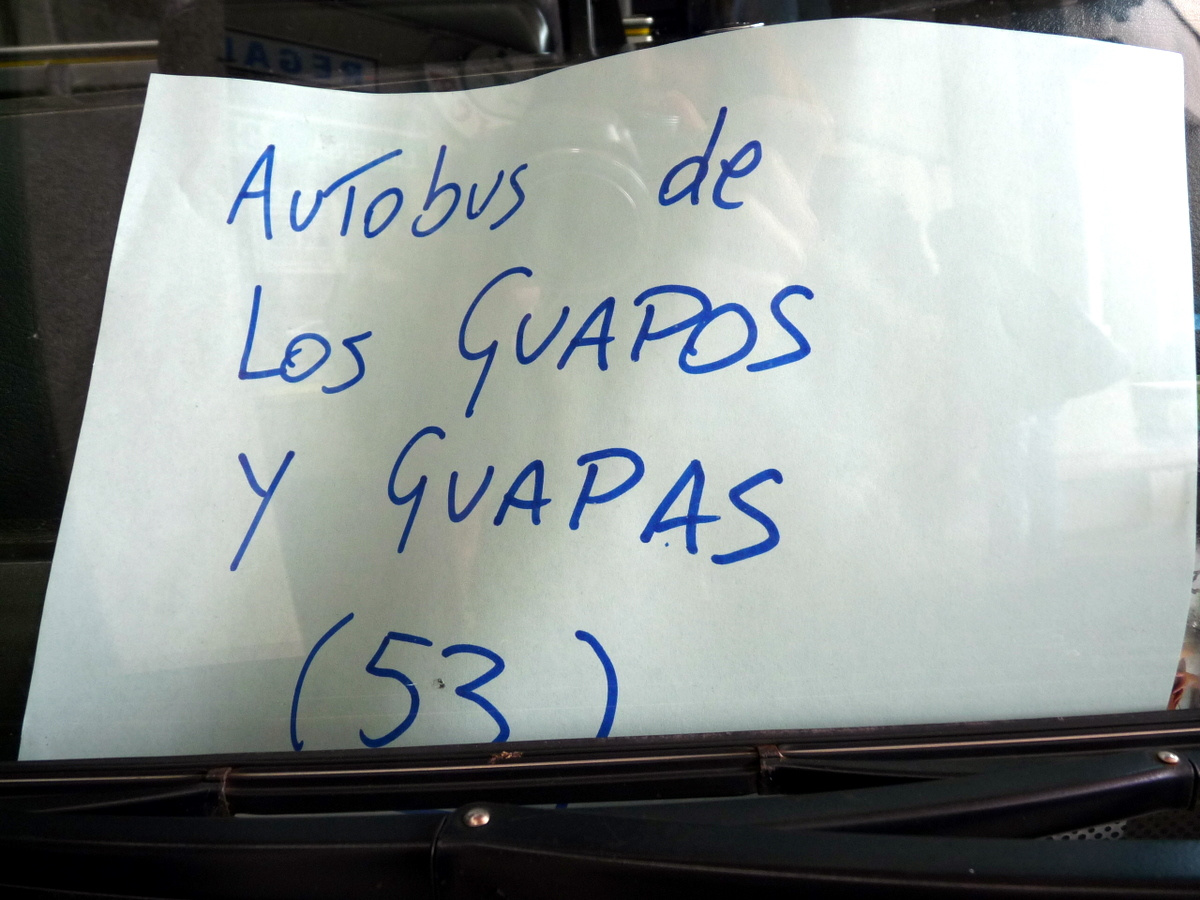 REGAL
AUTObus de
Los GUAPOS
y GUAPAS
(53)